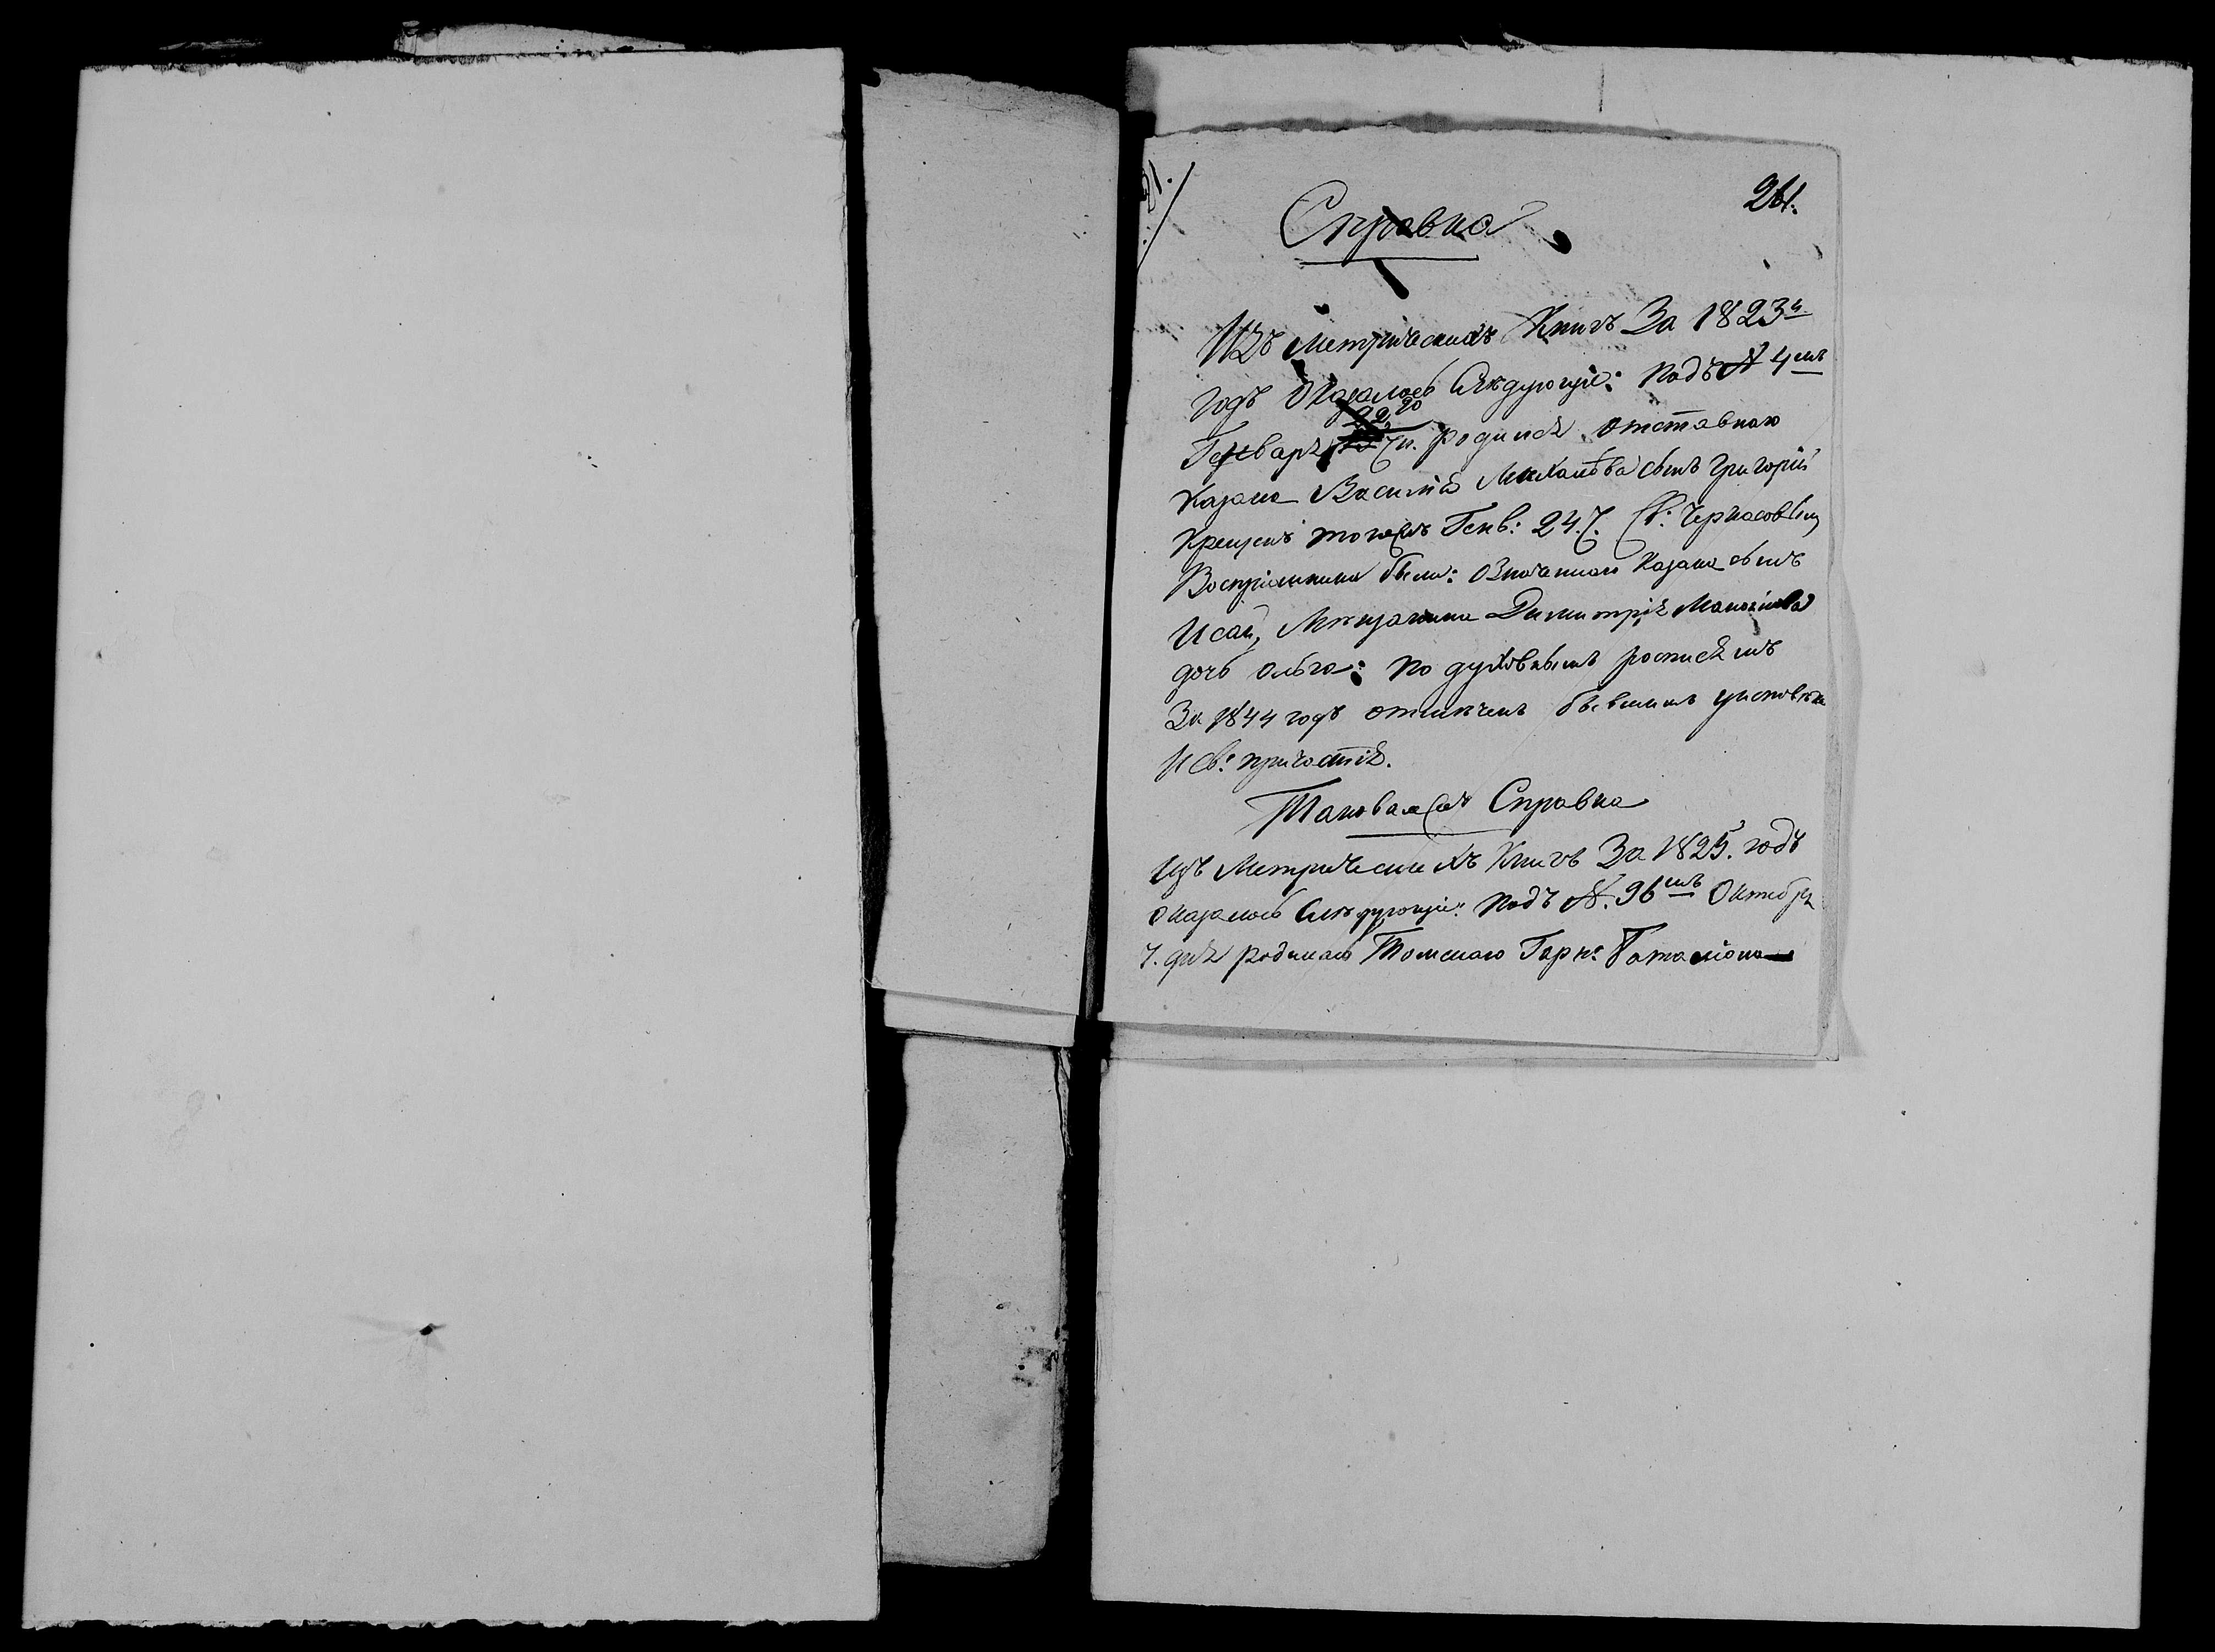 261.
Справка
Изъ Метрическихъ Книгъ За 1823й
годъ Оказалось Слѣдующіе: подъ № 4мъ
Генваря 22го родился отставнаго
Казака Василія Михайлова сынъ Григорій
Крещенъ тогожъ Генв: 24.
Воспріемники были: Означеннаго Казака сынъ
Исай, Мѣщанина Димитрія
дочь Ольга: По духовнымъ росписямъ
За 1844 годъ отмѣченъ бывшимъ уисповѣди
И Св: причастія.
Таковая жъ Справка
Изъ Метрическихъ Книгъ За 1825. годъ
оказалось Слѣдующіе: подъ №. 96мъ Октября
7. дня родилась Томскаго Гарн: Баталіона